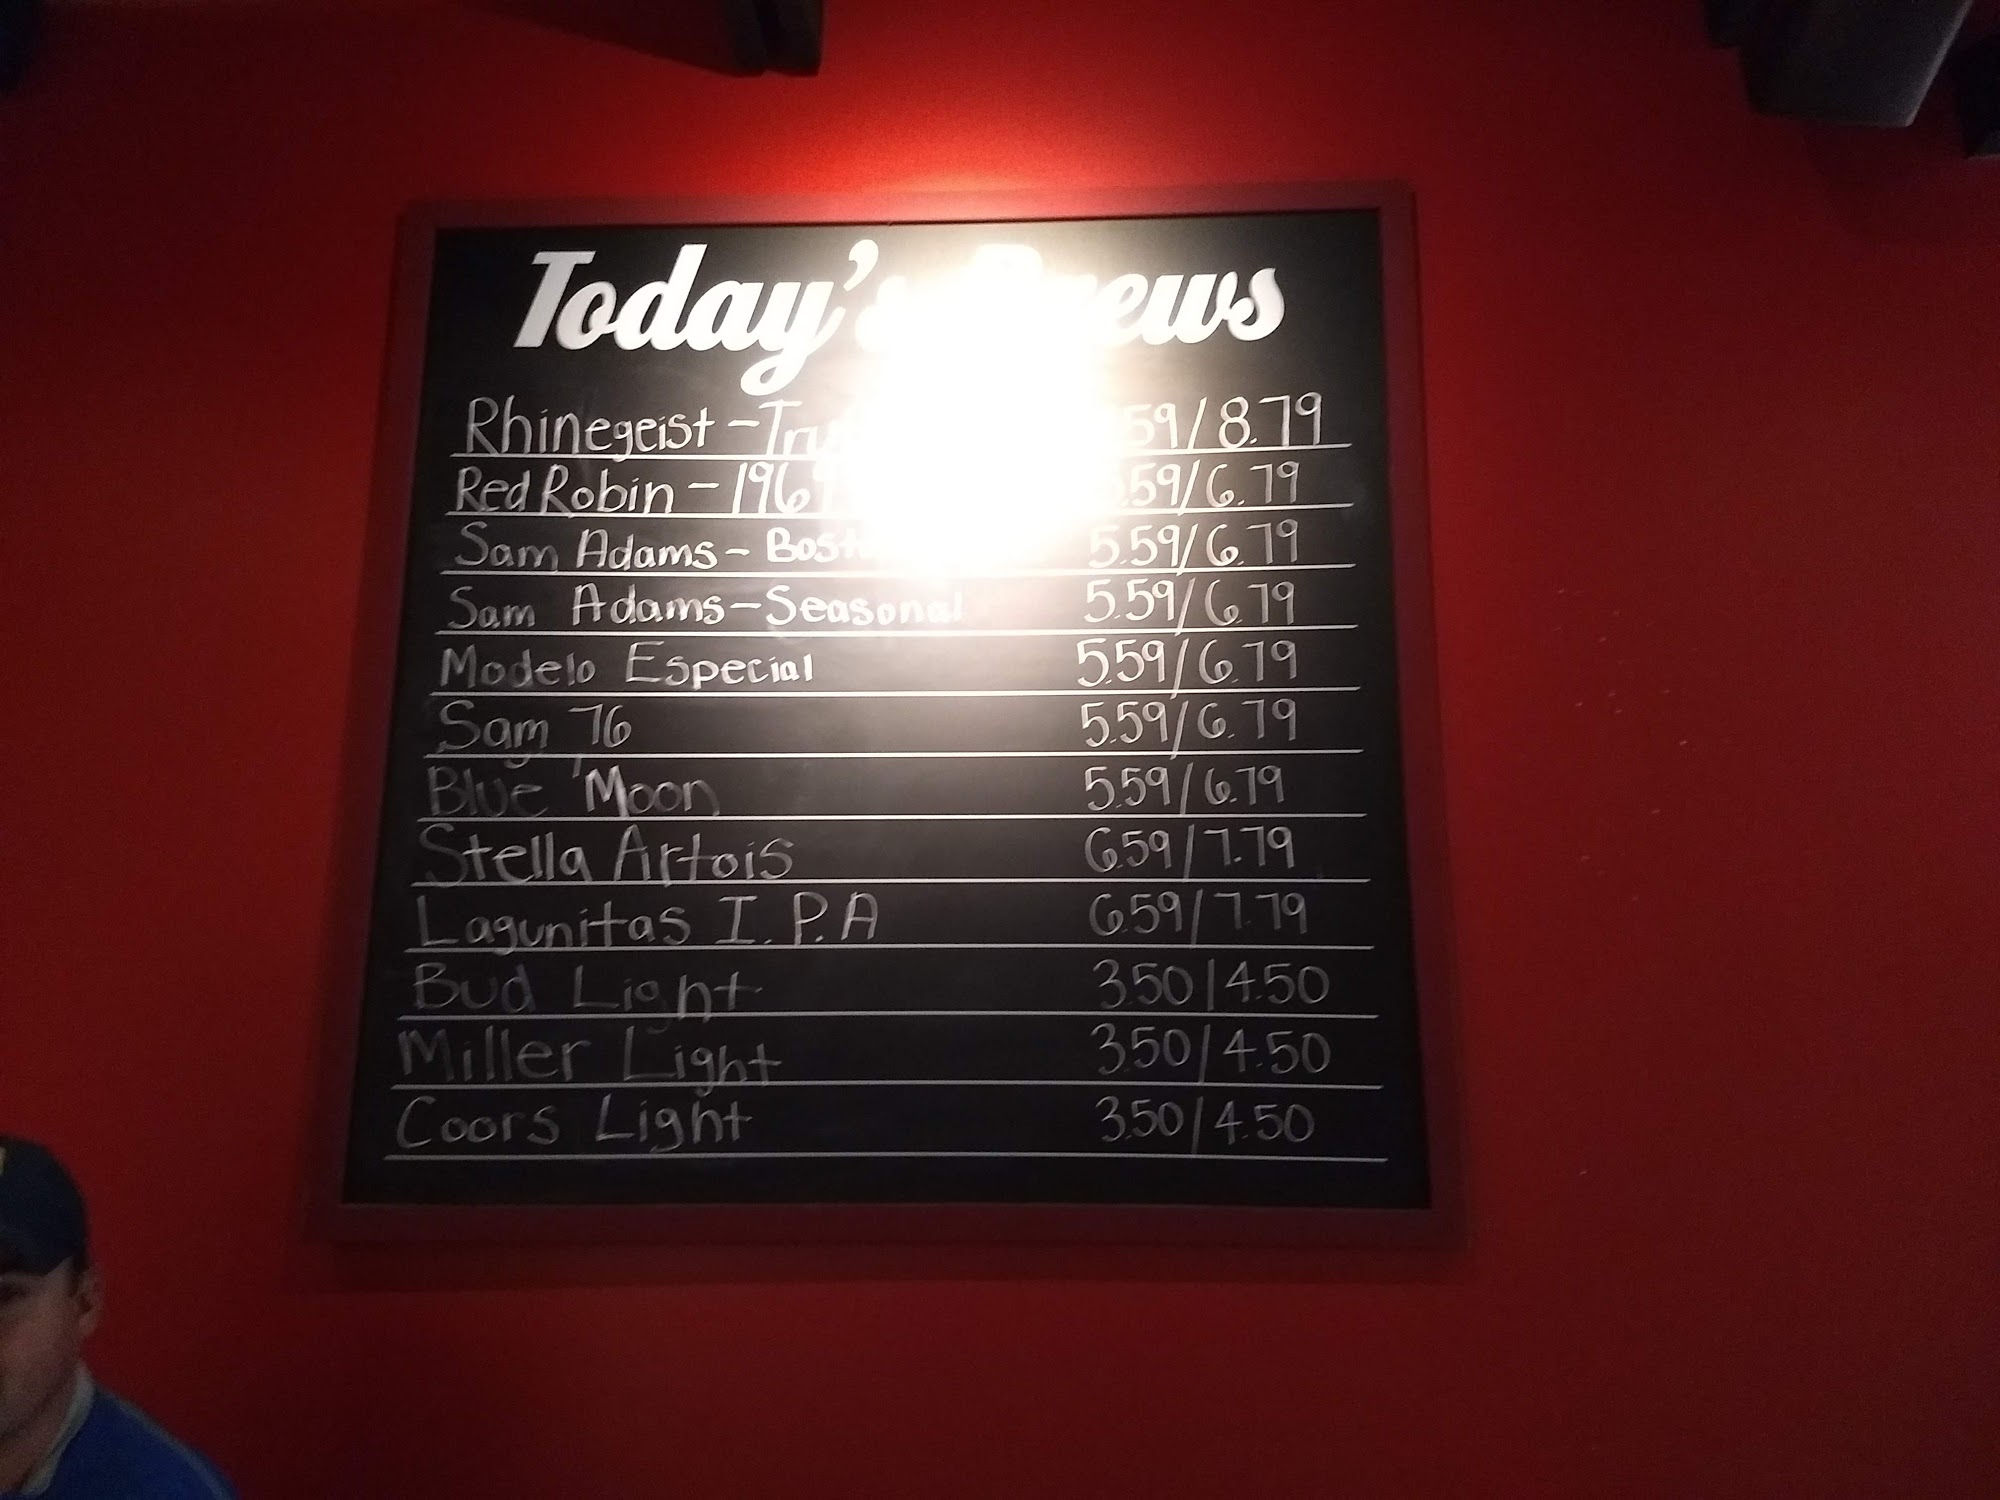 Today's Brews
Rhinegeist - 8.79
Red Robin - 1969 6.79
Sam Adams - 5.59/6.79
Sam Adams - Seasonal 5.59/6.79
Modelo Especial 5.59/6.79
Sam 76 5.59/6.79
Blue Moon 5.59/6.79
Stella Artois 6.59/7.79
Lagunitas I.P.A 6.59/7.79
Bud Light 3.50/4.50
Miller Light 3.50/4.50
Coors Light 3.50/4.50